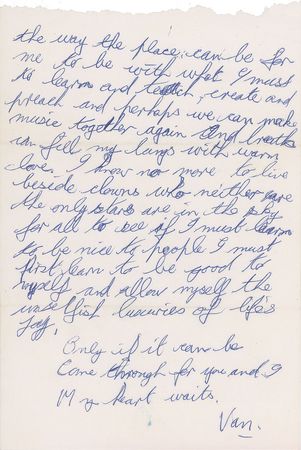 the way the place can be for
me to be with what I must
to learn and teach, create and
preach and perhaps we can make
music together again and breath
can fill my lungs with warm
love. I know no more to live
beside clowns who neither care
the only stars are in the sky
for all to see if I must learn
to be nice to people I must
first learn to be good to
myself and allow myself the
unselfish luxuries of life's
joy,
Only if it can be
Come through for you and I
My heart waits.
Van.